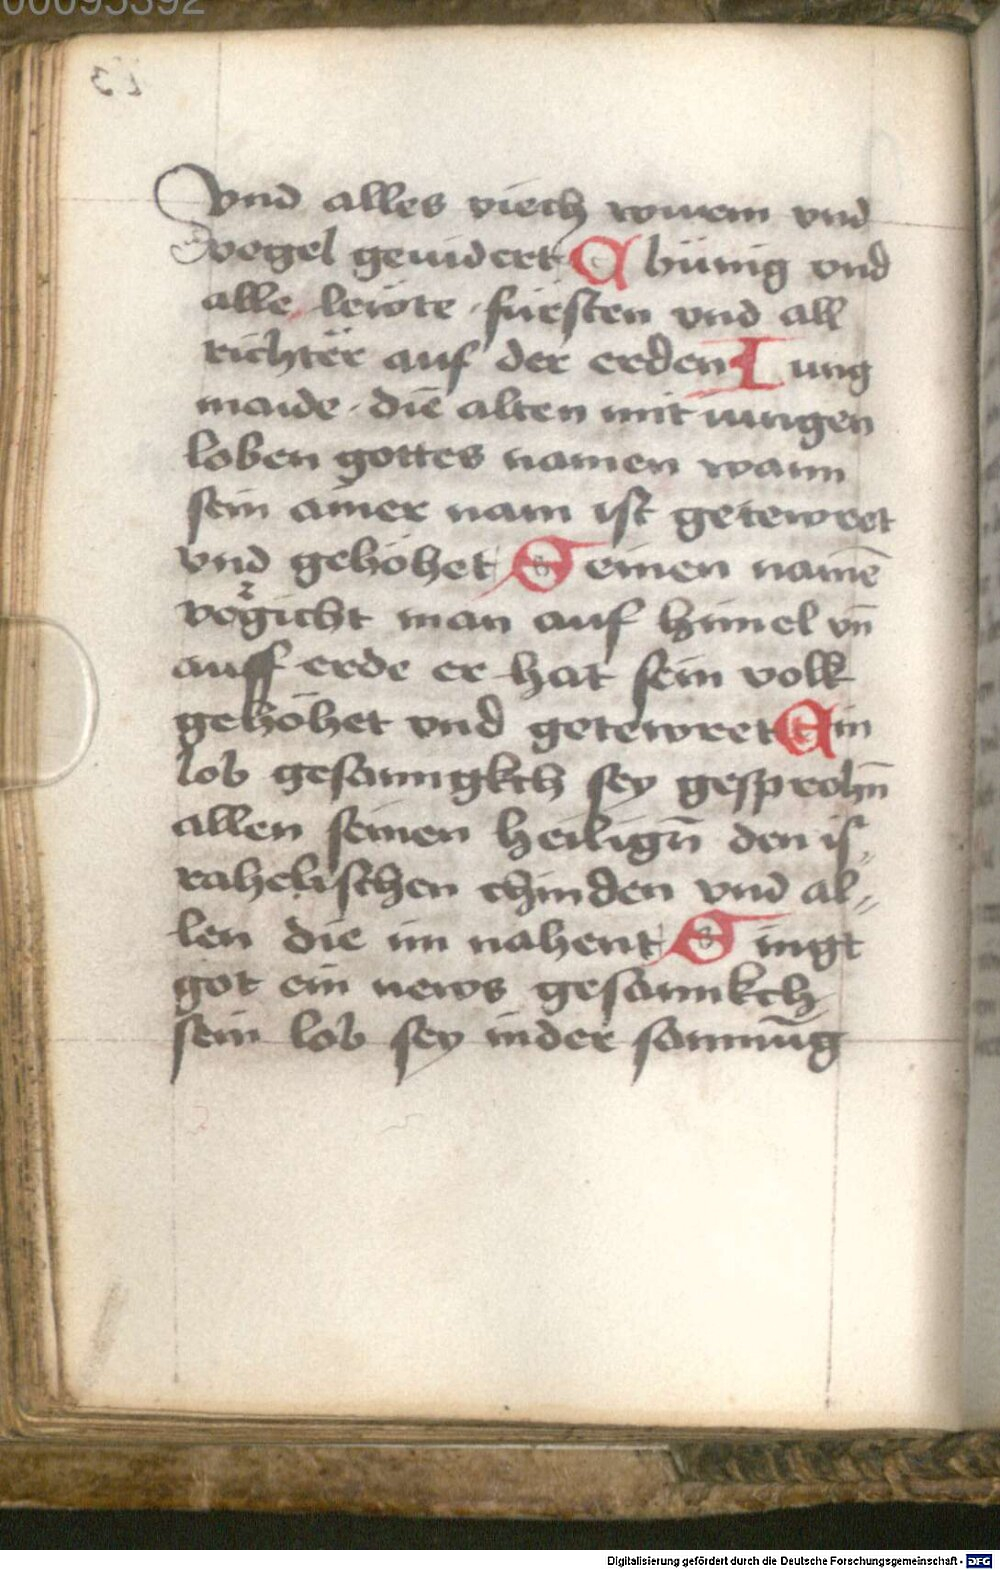 00095392
Vnd alles viech wurem vnd
vogel geuidert Chünig vnd
alle lewte fürsten vnd all
richter auf der erden Iung
maide die alten mit iungen
loben gottes namen wann
sein ainer nam ist getewret
vnd gehöhet Seinen namē
vergicht man auf himel vn̄
auff erde er hat sein volk
gehöhet vnd getewret Ein
lob gesanngkch sey gesprohn̄
allen seinen heilign̄ den is„
rahelischen chinden vnd al„
len die im nahent Singt
got ein news gesannkch
sein lob sey inder samnūg
Digitalisierung gefördert durch die Deutsche Forschungsgemeinschaft - DFG